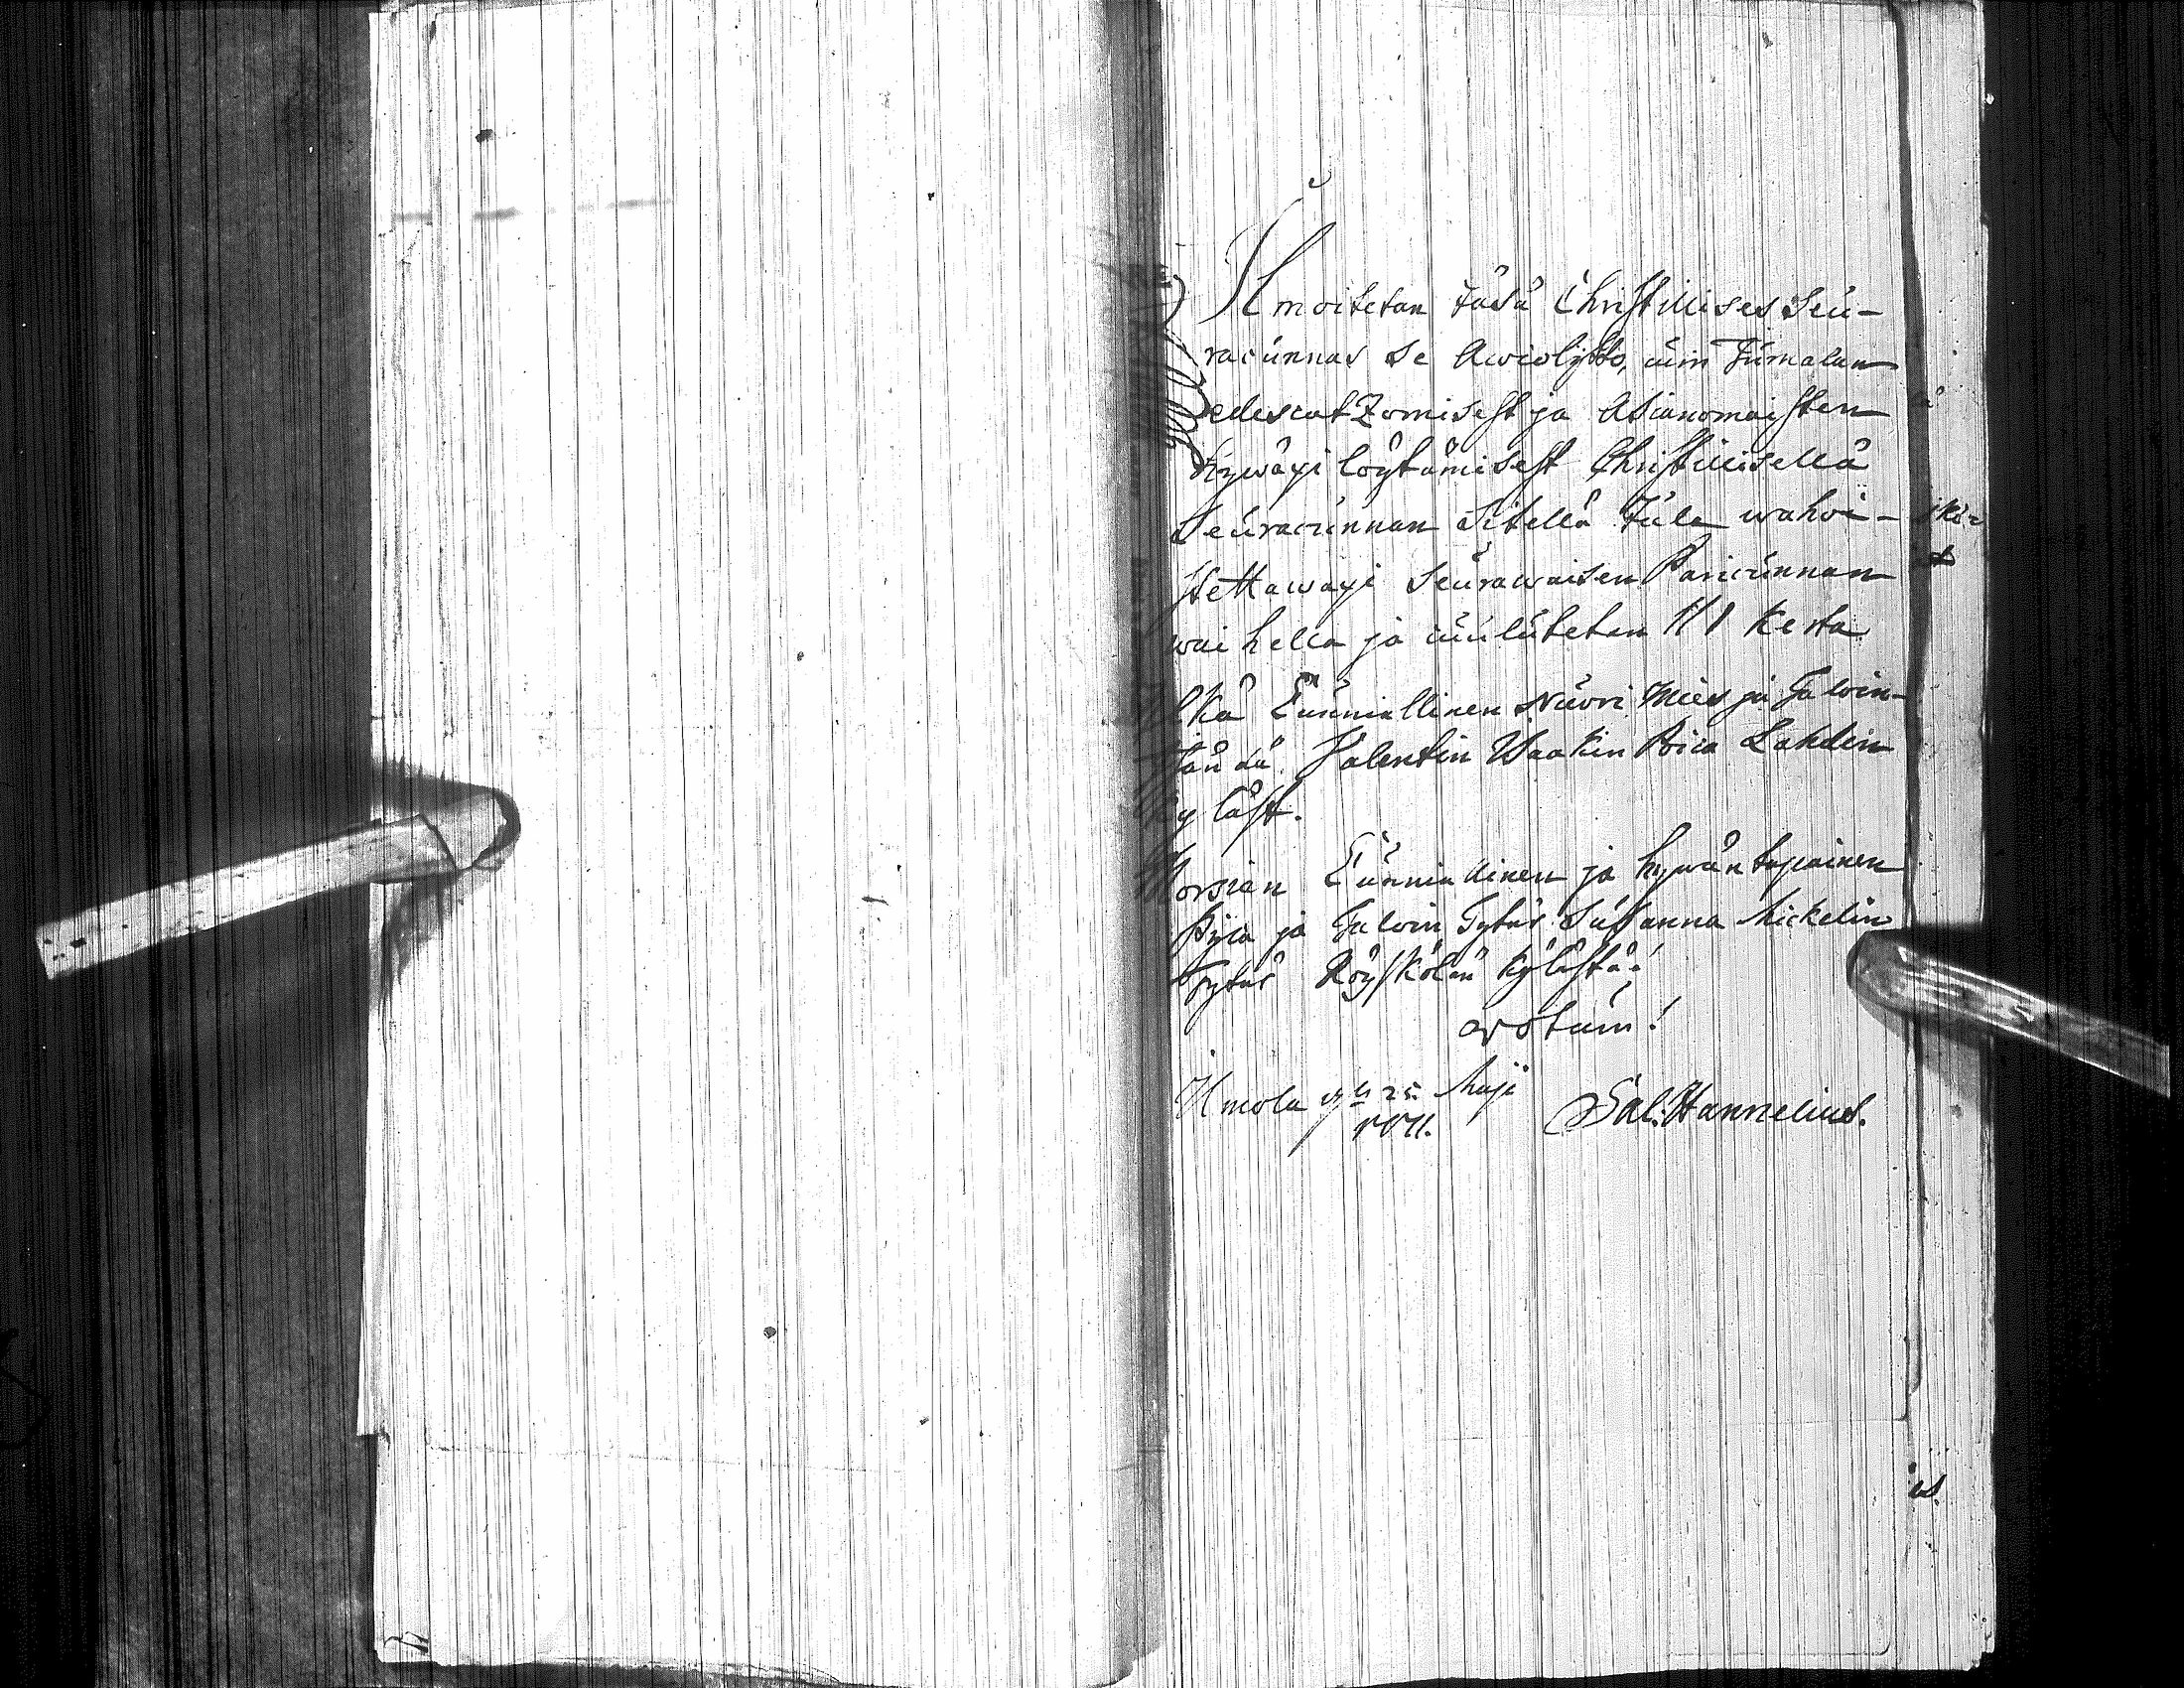 Ilmoitetan täsä Christillises Seu-
racunnas se Awioljtto, cuin Jumalan
edescatzomisest ja Asianomaisten
hywäxi löytämisest Christillisellä
Seuracunnan Sitellä tule wahwi-
stettawaxi seurawaisen Pariounnan
waihella ja cuulutetan 1/1 kerta
Ylkä Cunniallinen Nuori Mies ja Taloin-
Valentin Waakin Poica Lahden
kyläst.
Morsian Cunniallinen ja hywäntapainen
Pijca ja Taloin Tytär Susanna Mickelin
Tytär Röyskölän kylästä!
votum!
Ilmola 25 Maji
Sal. Hannelius.